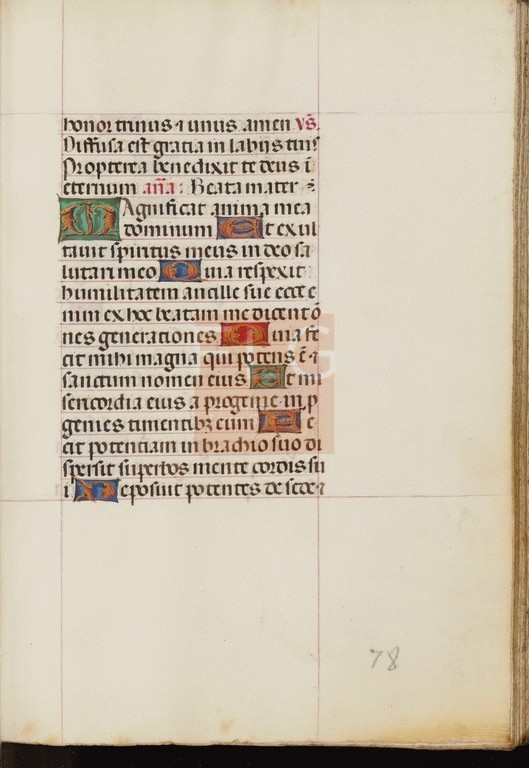 honor trinus ⁊ unus amen vs̄.
Diffusa est gratia in labijs tuis
Propterea benedixit te deus ī
eternum an̄a: Beata mater ⁊
Magnificat anima mea
dominum Et exul
tavit spiritus meus in deo sa
lutari meo Quia respexit
humilitatem ancille sue ecce e
nim ex hoc beatam me dicent ō
nes generationes Quia fe
cit mihi magna qui potens ē ⁊
sanctum nomen eius Et mi
sericordia eius a progenie in p
genies timentibꝫ eum Fe
cit potentiam in brachio suo di
spersit superbos mente cordis su
i Deposuit potentes de sede ⁊
78